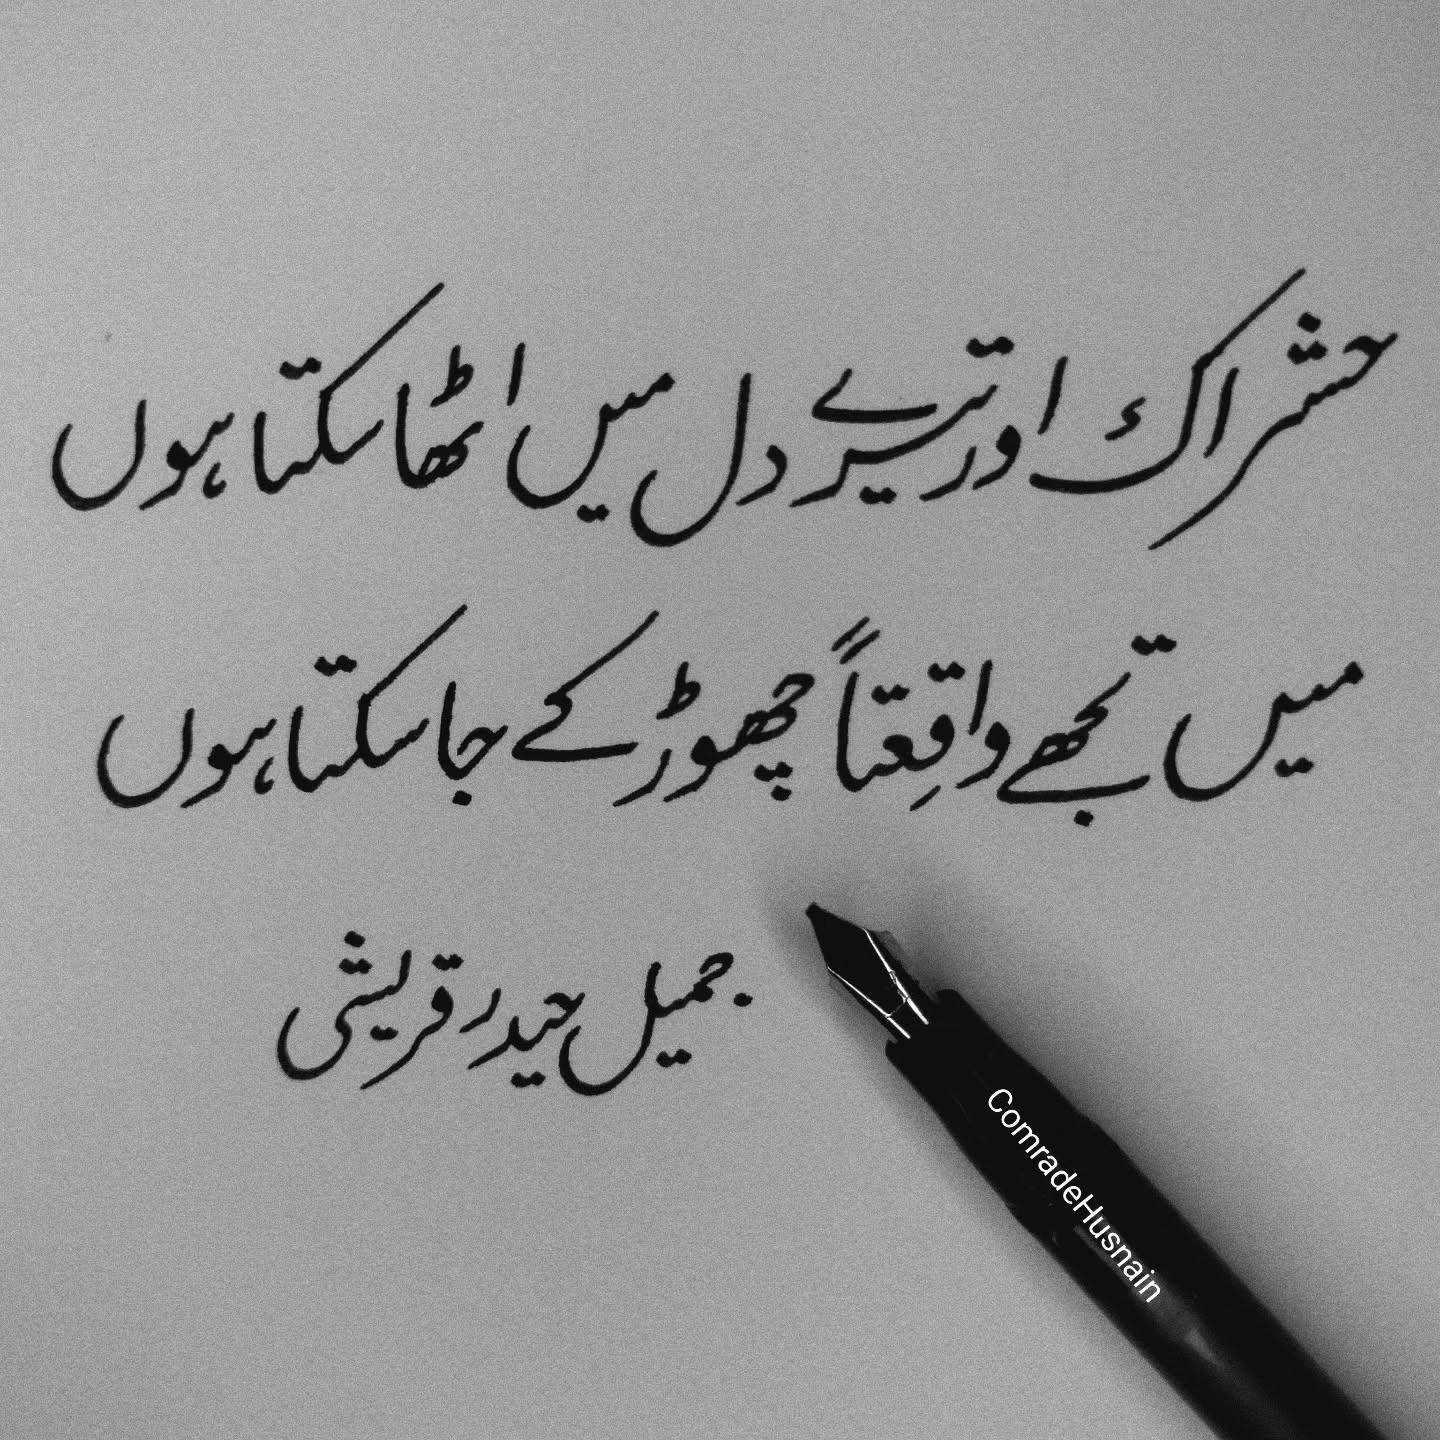 حشر اک اور ترے دل میں اٹھا سکتا ہوں
میں تجھے واقِعتاً چھوڑ کے جا سکتا ہوں
جمیل حیدر قریشی
ComradeHusnain